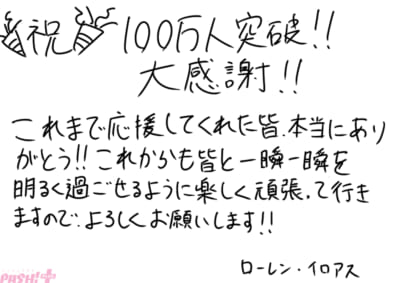 祝 100万人突破!!
大感謝!!
これまで応援してくれた皆、本当にあり
がとう!!これからも皆と一瞬一瞬を
明るく過ごせるように楽しく頑張って行き
ますので、よろしくお願いします!!
ローレン・イロアス
PASH!+